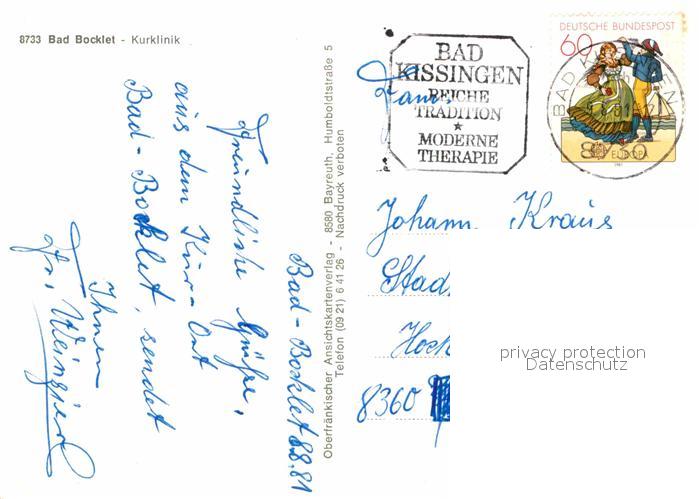 8733 Bad Bocklet - Kurklinik
Bad-Bocklet 8.8.81
Freundliche Grüße,
aus dem Kur-Ort
Bad-Bocklet, sendet
Ihnen
Oberfränkischer Ansichtskartenverlag - 8580 Bayreuth, Humboldtstraße 5
Telefon (09 21) 6 41 26 - Nachdruck verboten
BAD
KISSINGEN
REICHE
TRADITION
★
MODERNE
THERAPIE
DEUTSCHE BUNDESPOST
60
EUROPA
1981
Johann Kraus
Stad
Hoch
8360
privacy protection
Datenschutz